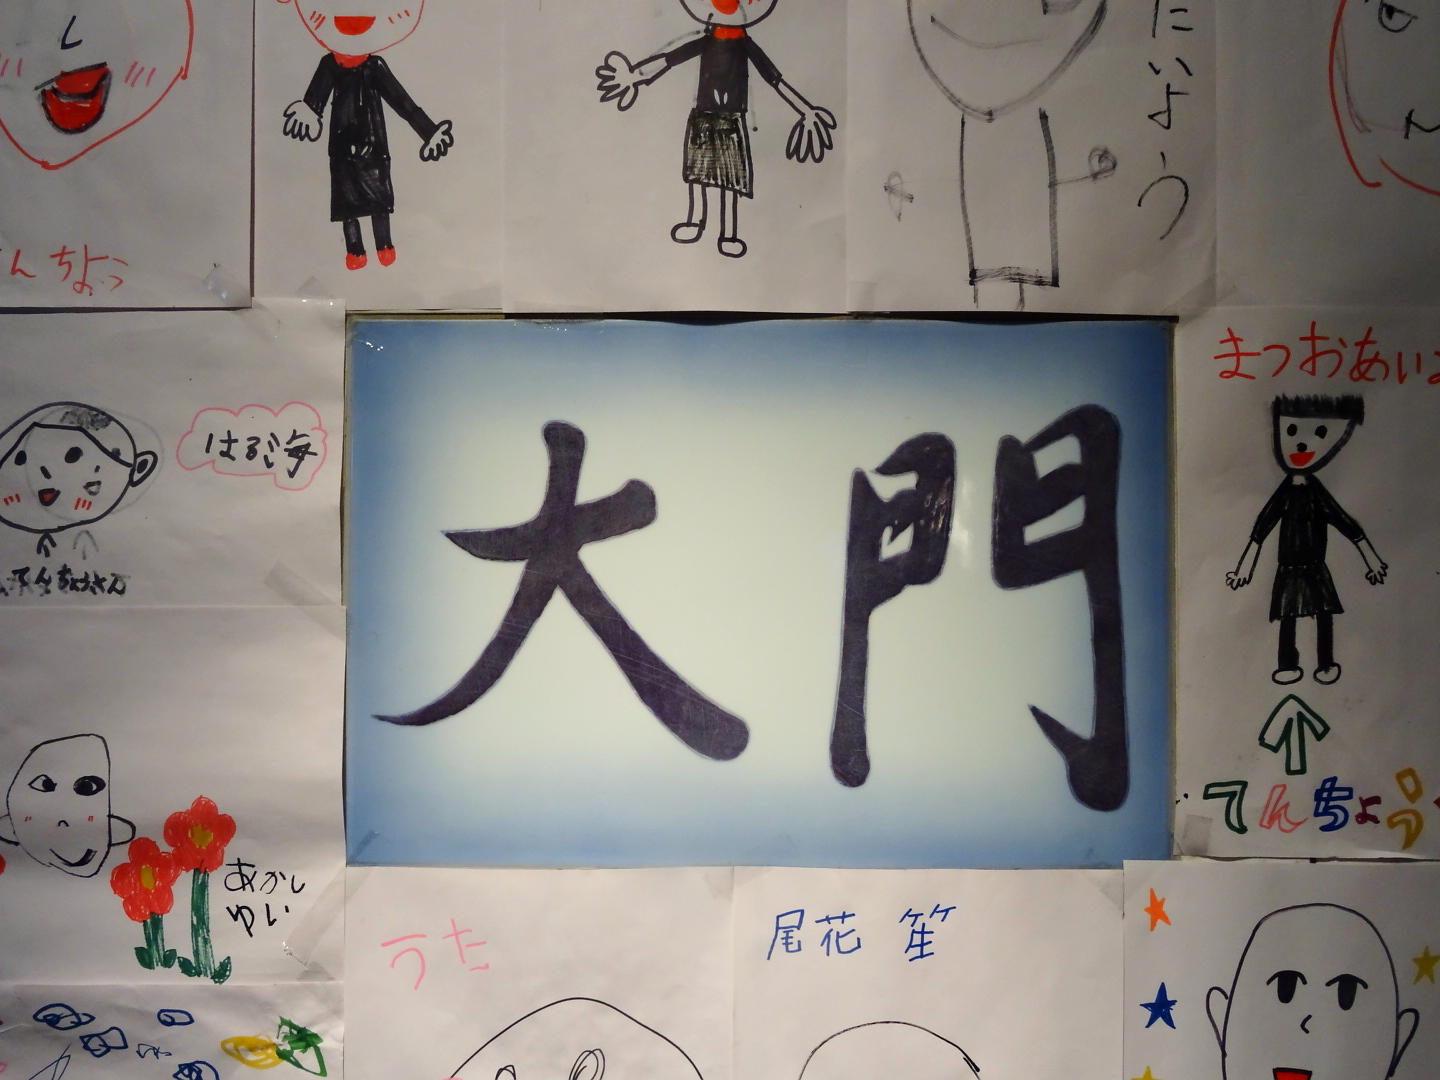 たいよう
んちょう
まつおあい
はる海
てんちょうさん
大門
てんちょう
あかし
ゆい
うた
尾花 笙